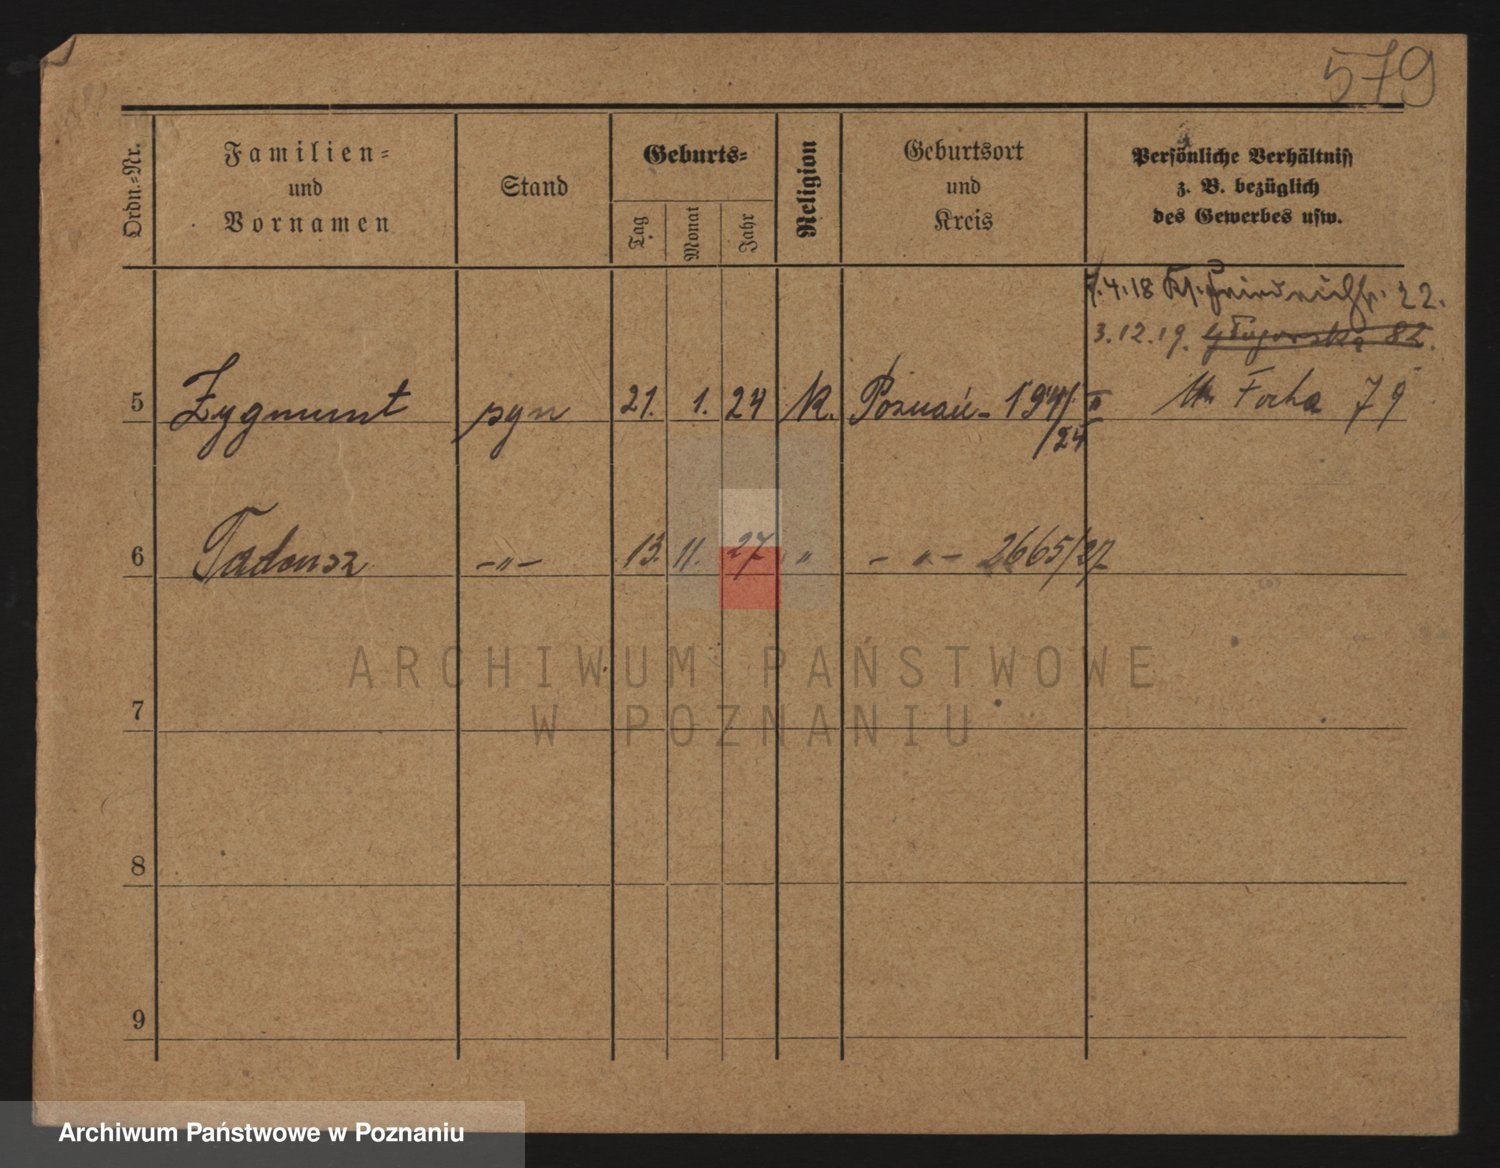 579
Ordn.-Nr.
Familien-
und
Vornamen
Stand
Geburts-
Tag
Monat
Jahr
Religion
Geburtsort
und
Kreis
Persönliche Verhältniss
z. B. bezüglich
des Gewerbes usw.
7.4.18 Friedrichstr. 22.
3.12.19. 82.
5 Zygmunt syn 21. 1. 24 K. Poznań - Focha 79
/24
6 Tadeusz -"- 13. 11. 27 " - " - 2665/27
7
8
9
ARCHIWUM PAŃSTWOWE
W POZNANIU
Archiwum Państwowe w Poznaniu